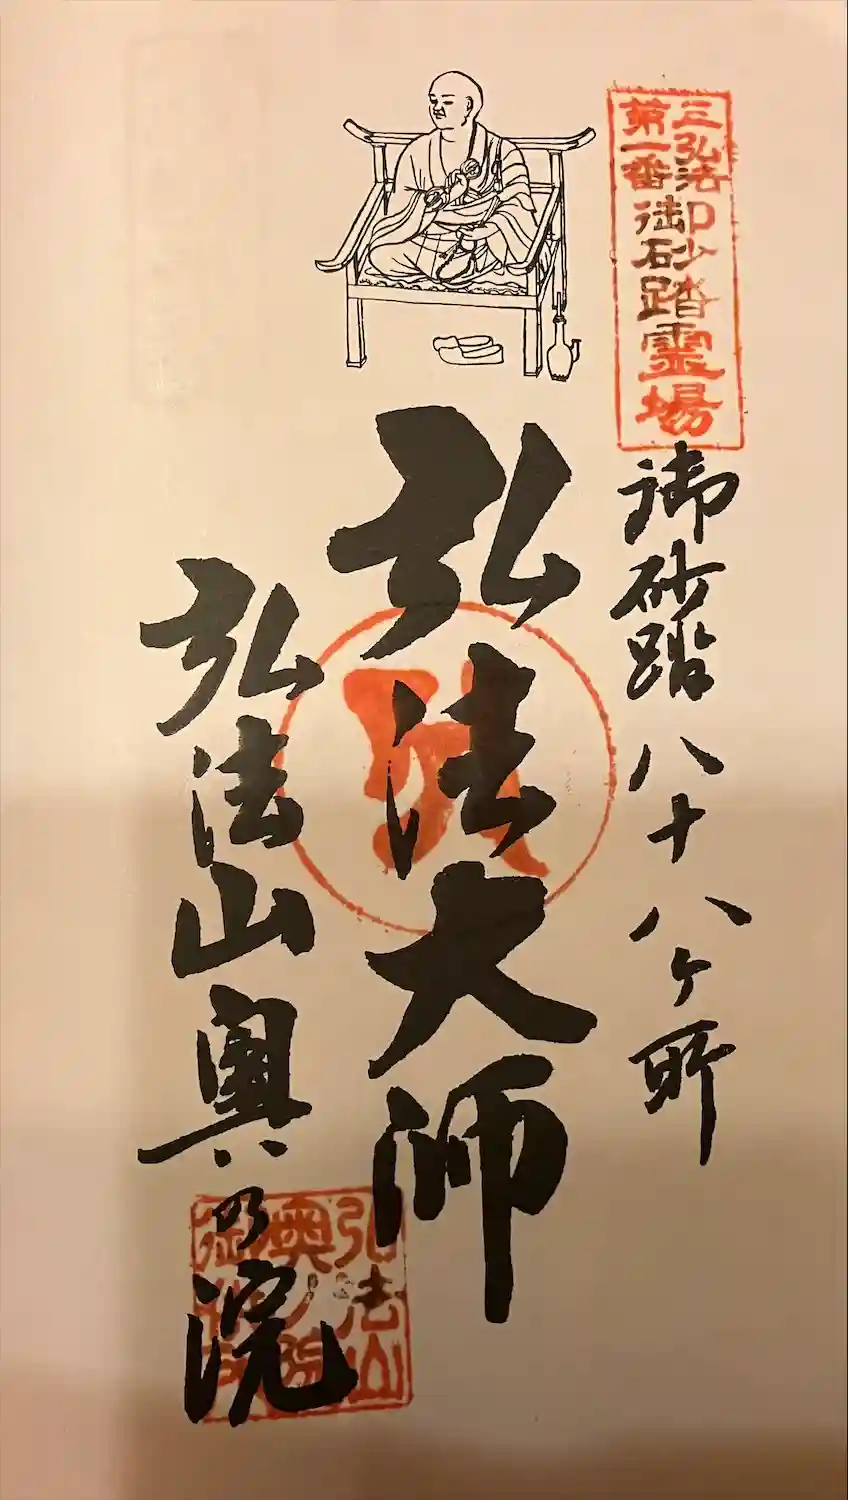 三弘法
第一番
御砂踏霊場
御砂踏八十八ヶ所
弘法大師
弘
弘法山奥乃院
弘法山
奥ノ院